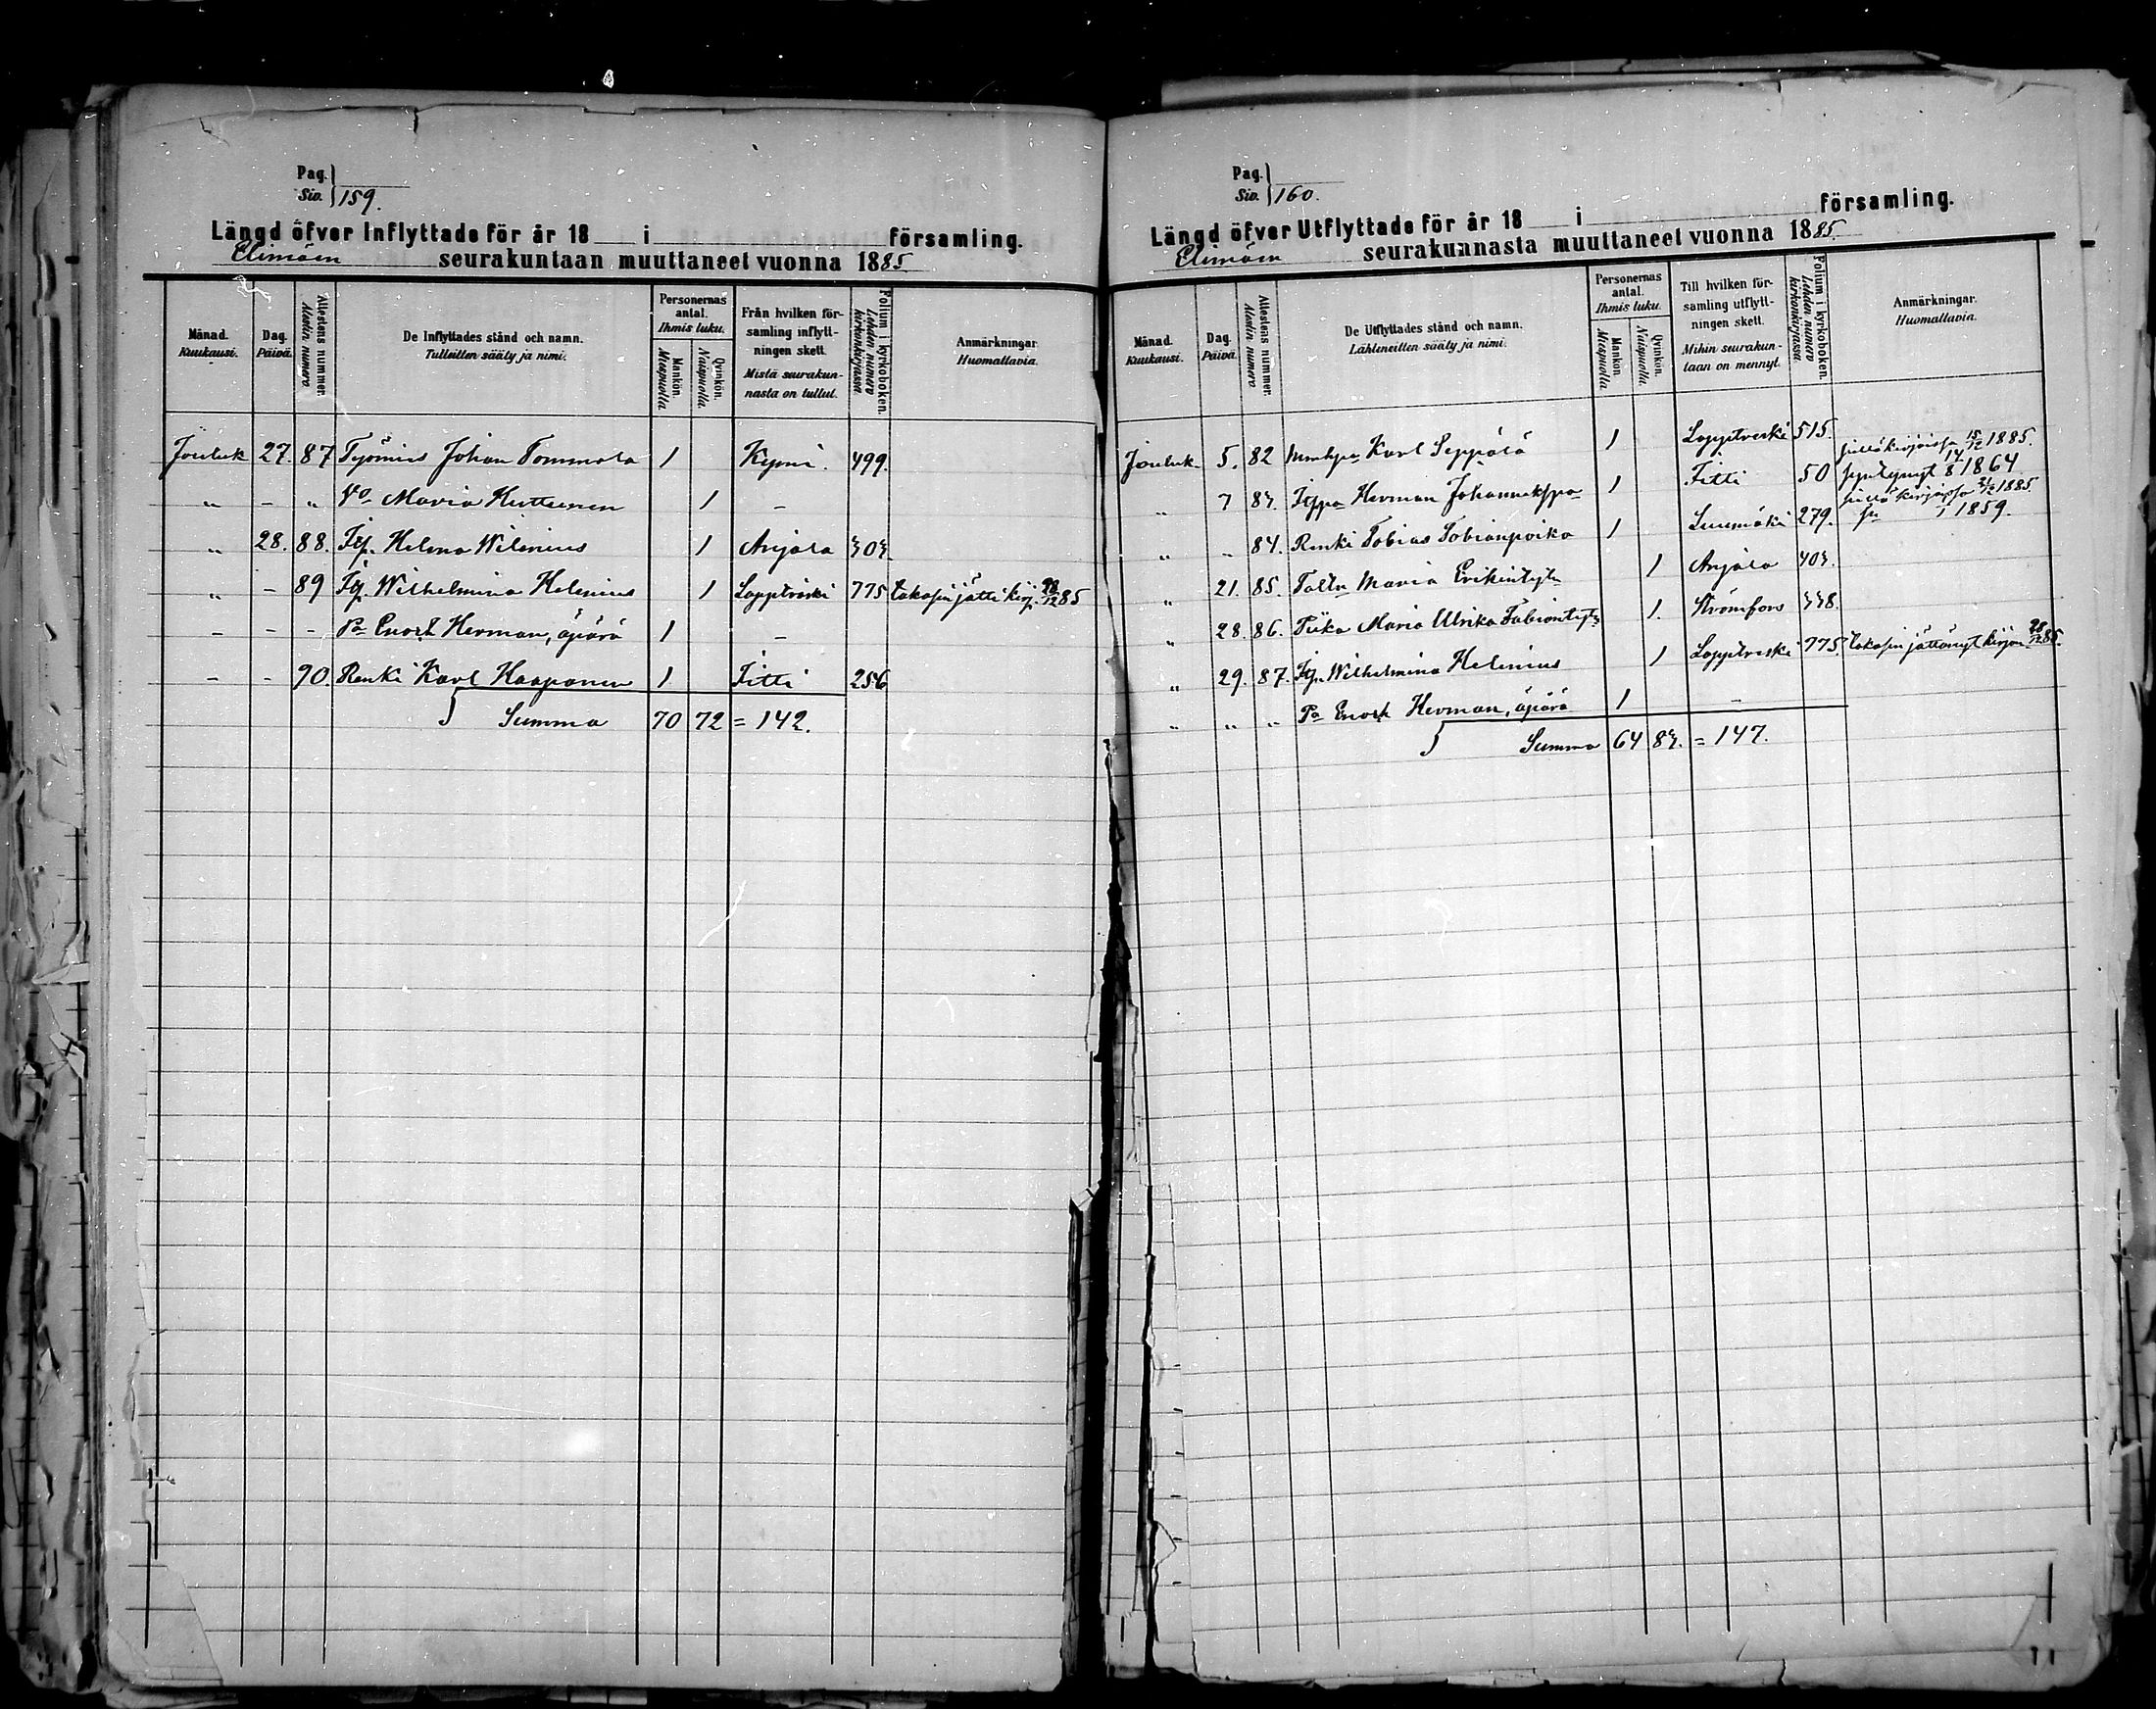 Pag.
Siv. 159.
Längd öfver Inflyttade för år 18 i församling.
Elimäen seurakuntaan muuttaneet vuonna 1885
Månad. Kuukausi.
Dag. Päivä.
Attestens nummer. Attestin numero
De Inflyttades stånd och namn. Tulleitten sääty ja nimi.
Personernas antal. Ihmis luku.
Mankön. Miespuolia
Qvinkön. Naispuolia
Från hvilken församling inflyttningen skett. Mistä seurakunnasta on tullut.
Folium i kyrkoboken. Lehden numero kirkonkirjassa
Anmärkningar. Huomattavia.
Jouluk 27. 87 Työmies Johan Tommola 1 Kymi. 499.
" - " Vo Maria Huttunen 1 -
" 28. 88. Itp. Helena Wilenius 1 Anjala 303.
" - 89 Itp. Wilhelmina Helenius 1 Lapptreski 775 takasin jätti kirj. 28/12 85
- - - Pa Enock Herman, äpärä 1 -
- - 90. Renki Karl Haaponen 1 Iitti 256
Summa 70 72 = 142.
Pag.
Siv. 160.
Längd öfver Utflyttade för år 18 i församling.
Elimäen seurakunnasta muuttaneet vuonna 1885.
Månad. Kuukausi.
Dag. Päivä.
Attestens nummer. Attestin numero
De Utflyttades stånd och namn. Lähteneitten sääty ja nimi.
Personernas antal. Ihmis luku.
Mankön. Miespuolia
Qvinkön. Naispuolia
Till hvilken församling utflyttningen skett. Mihin seurakuntaan on mennyt.
Folium i kyrkoboken. Lehden numero kirkonkirjassa
Anmärkningar. Huomattavia.
Jouluk. 5. 82 Karl Seppälä 1 Lapptreski 515.
" 7 83. Herman 1 Iitti 50 1885. 1864
" - 84. Renki Tobias Tobianpoika 1 Luumäki 279. 1885. 1859.
" 21. 85. Maria Erikintytr 1 Anjala 403.
" 28. 86. Piika Maria Ulrika Fabiantytr 1. Strömfors 338.
" 29. 87. Itp. Wilhelmina Helenius 1 Lapptreski 775. takasin jättänyt kirjan 28/12 85.
" " " Pa Enock Herman, äpärä 1 -
Summa 64 83. = 147.